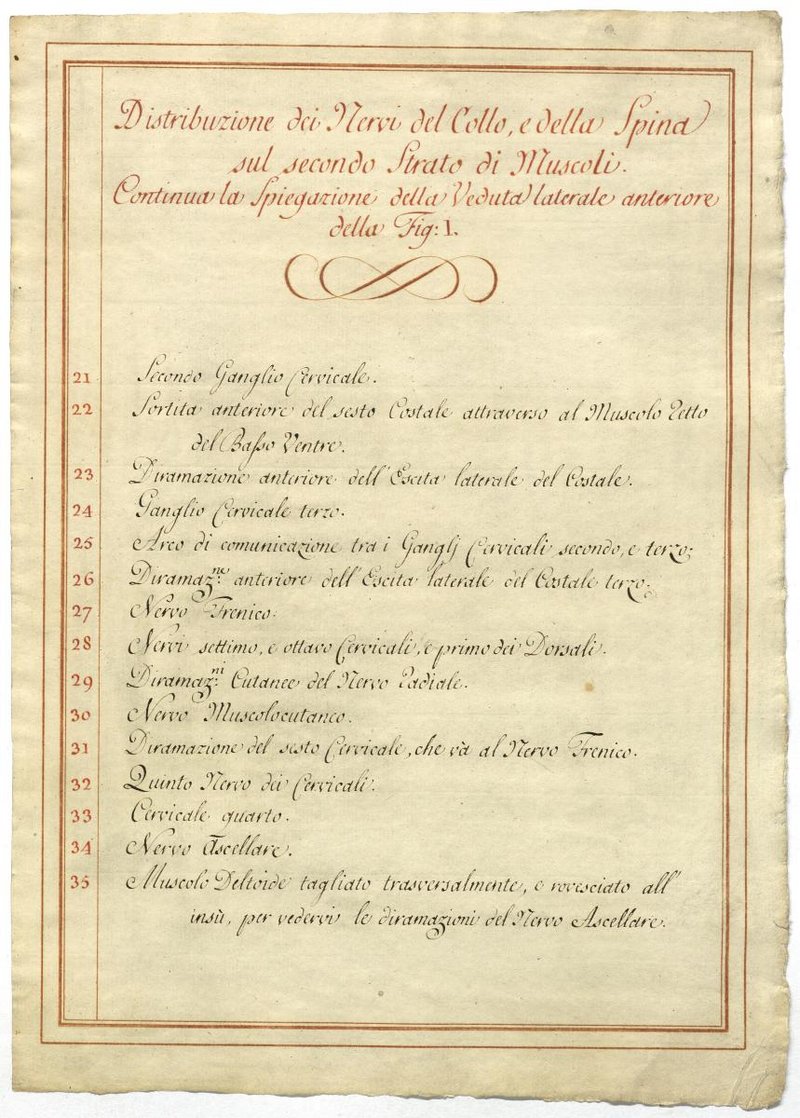 Distribuzione dei Nervi del Collo, e della Spina
sul secondo Strato di Muscoli.
Continua la Spiegazione della Veduta laterale anteriore
della Fig: I.
21 Secondo Ganglio Cervicale.
22 Sortita anteriore del sesto Costale attraverso al Muscolo Retto
del Basso Ventre.
23 Diramazione anteriore dell'Escita laterale del Costale.
24 Ganglio Cervicale terzo.
25 Arco di comunicazione tra i Ganglj Cervicali secondo, e terzo.
26 Diramaz.ne anteriore dell'Escita laterale del Costale terzo.
27 Nervo Frenico.
28 Nervi settimo, e ottavo Cervicali, e primo dei Dorsali.
29 Diramaz.ni Cutanee del Nervo Radiale.
30 Nervo Muscolocutaneo.
31 Diramazione del sesto Cervicale, che và al Nervo Frenico.
32 Quinto Nervo dei Cervicali.
33 Cervicale quarto.
34 Nervo Ascellare.
35 Muscolo Deltoide tagliato trasversalmente, e rovesciato all'
insù, per vedervi le diramazioni del Nervo Ascellare.